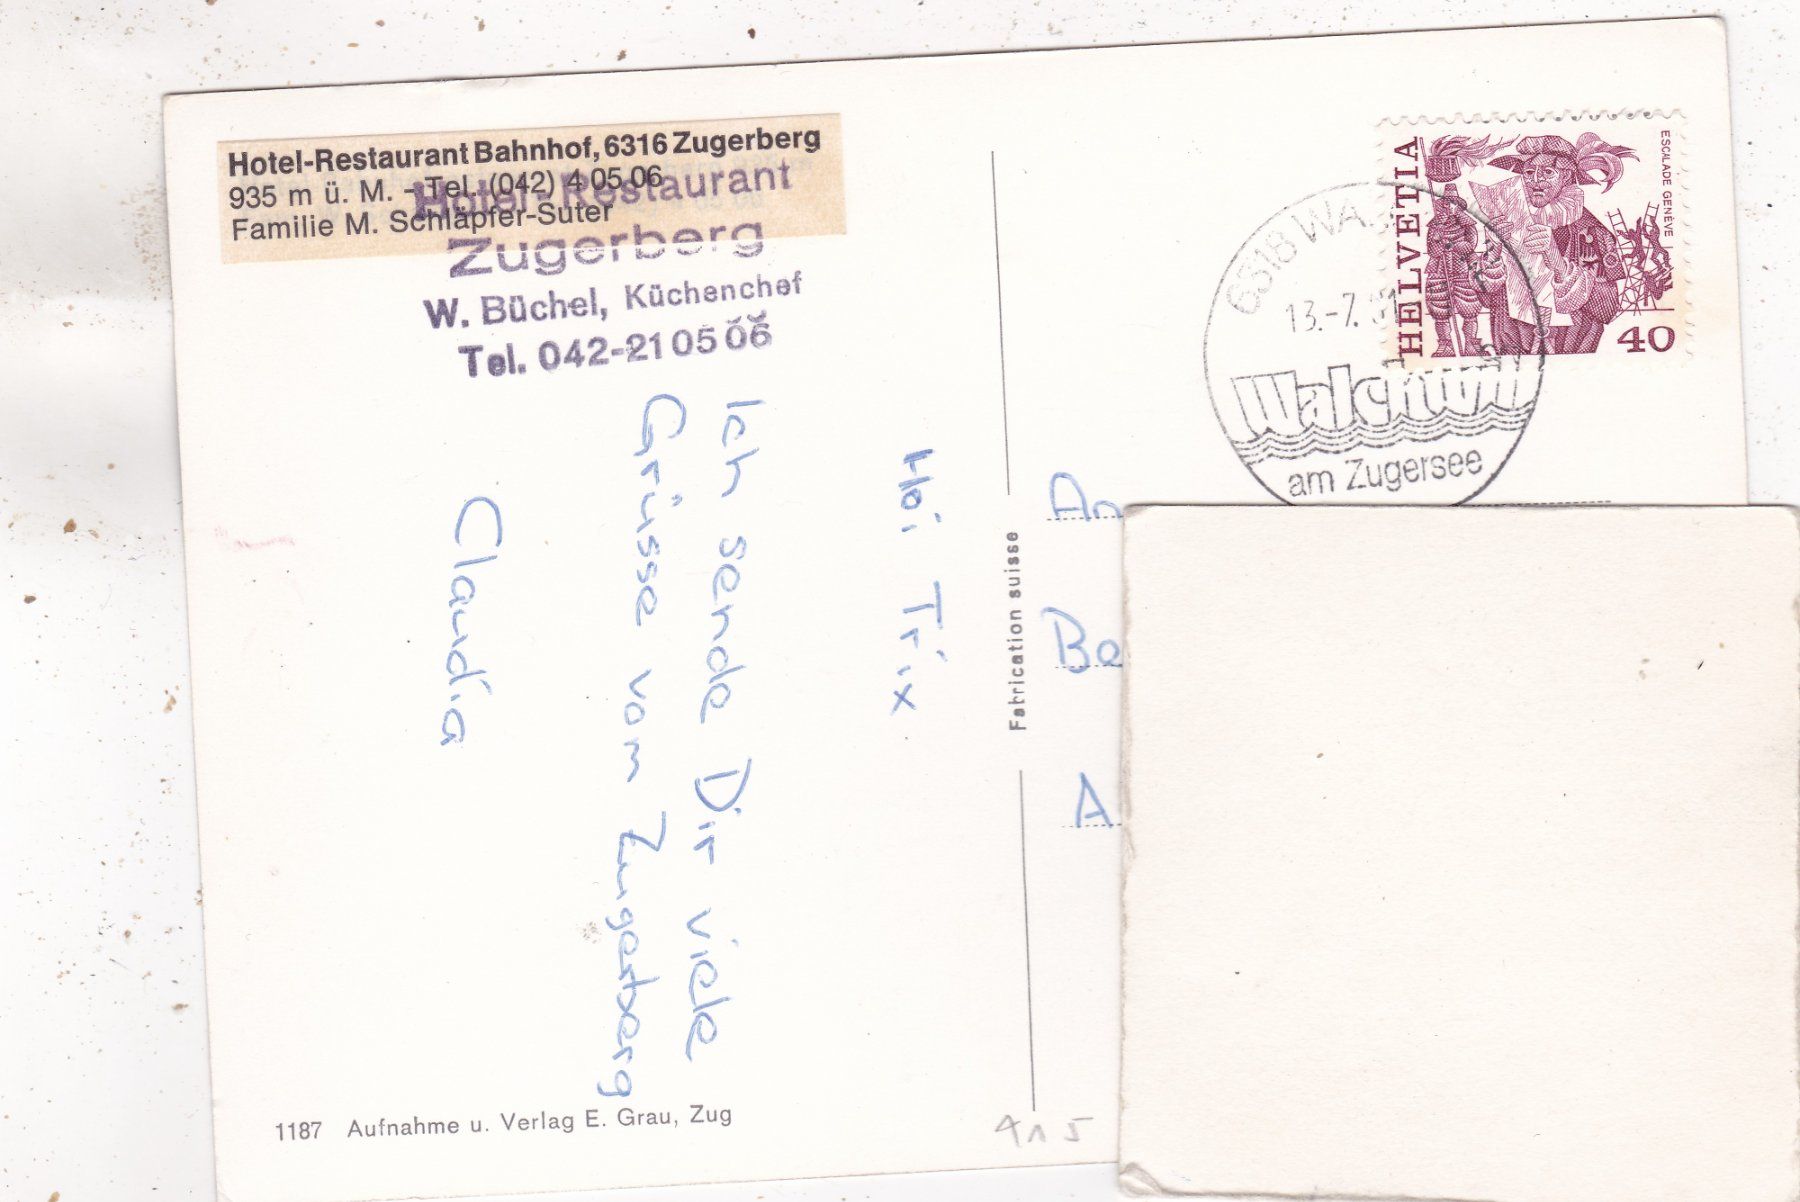 Hotel-Restaurant Bahnhof, 6316 Zugerberg
935 m ü. M. - Tel. (042) 4 05 06
Familie M. Schläpfer-Suter
Hotel-Restaurant
Zugerberg
W. Büchel, Küchenchef
Tel. 042-21 05 06
Hoi Trix
Ich sende Dir viele
Grüsse vom Zugerberg
Claudia
1187 Aufnahme u. Verlag E. Grau, Zug
Fabrication suisse
HELVETIA
ESCALADE GENÈVE
40
6318 WA
13.-7. 81
Walchwil
am Zugersee
An
Be
A